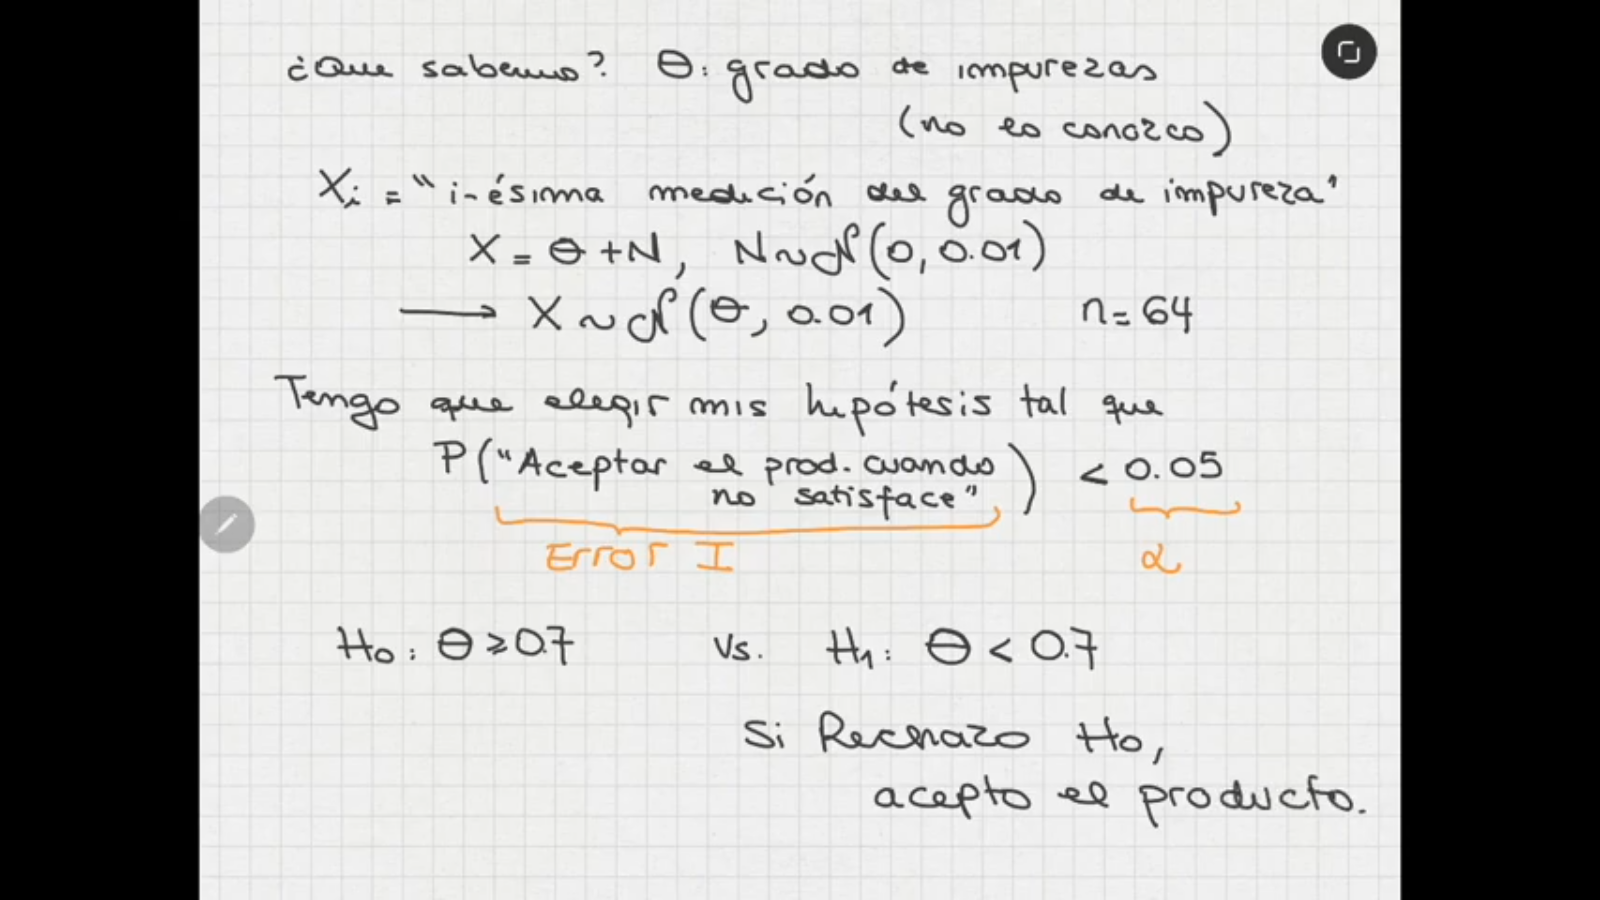 ¿Que sabemos? θ: grado de impurezas
(no lo conozco)
Xi = "i-ésima medición del grado de impureza"
X = θ + N, N ~ N(0, 0.01)
→ X ~ N(θ, 0.01) n = 64
Tengo que elegir mis hipótesis tal que
P("Aceptar el prod. cuando no satisface") < 0.05
Error I α
H0: θ ≥ 0.7 vs. H1: θ < 0.7
Si Rechazo H0,
acepto el producto.